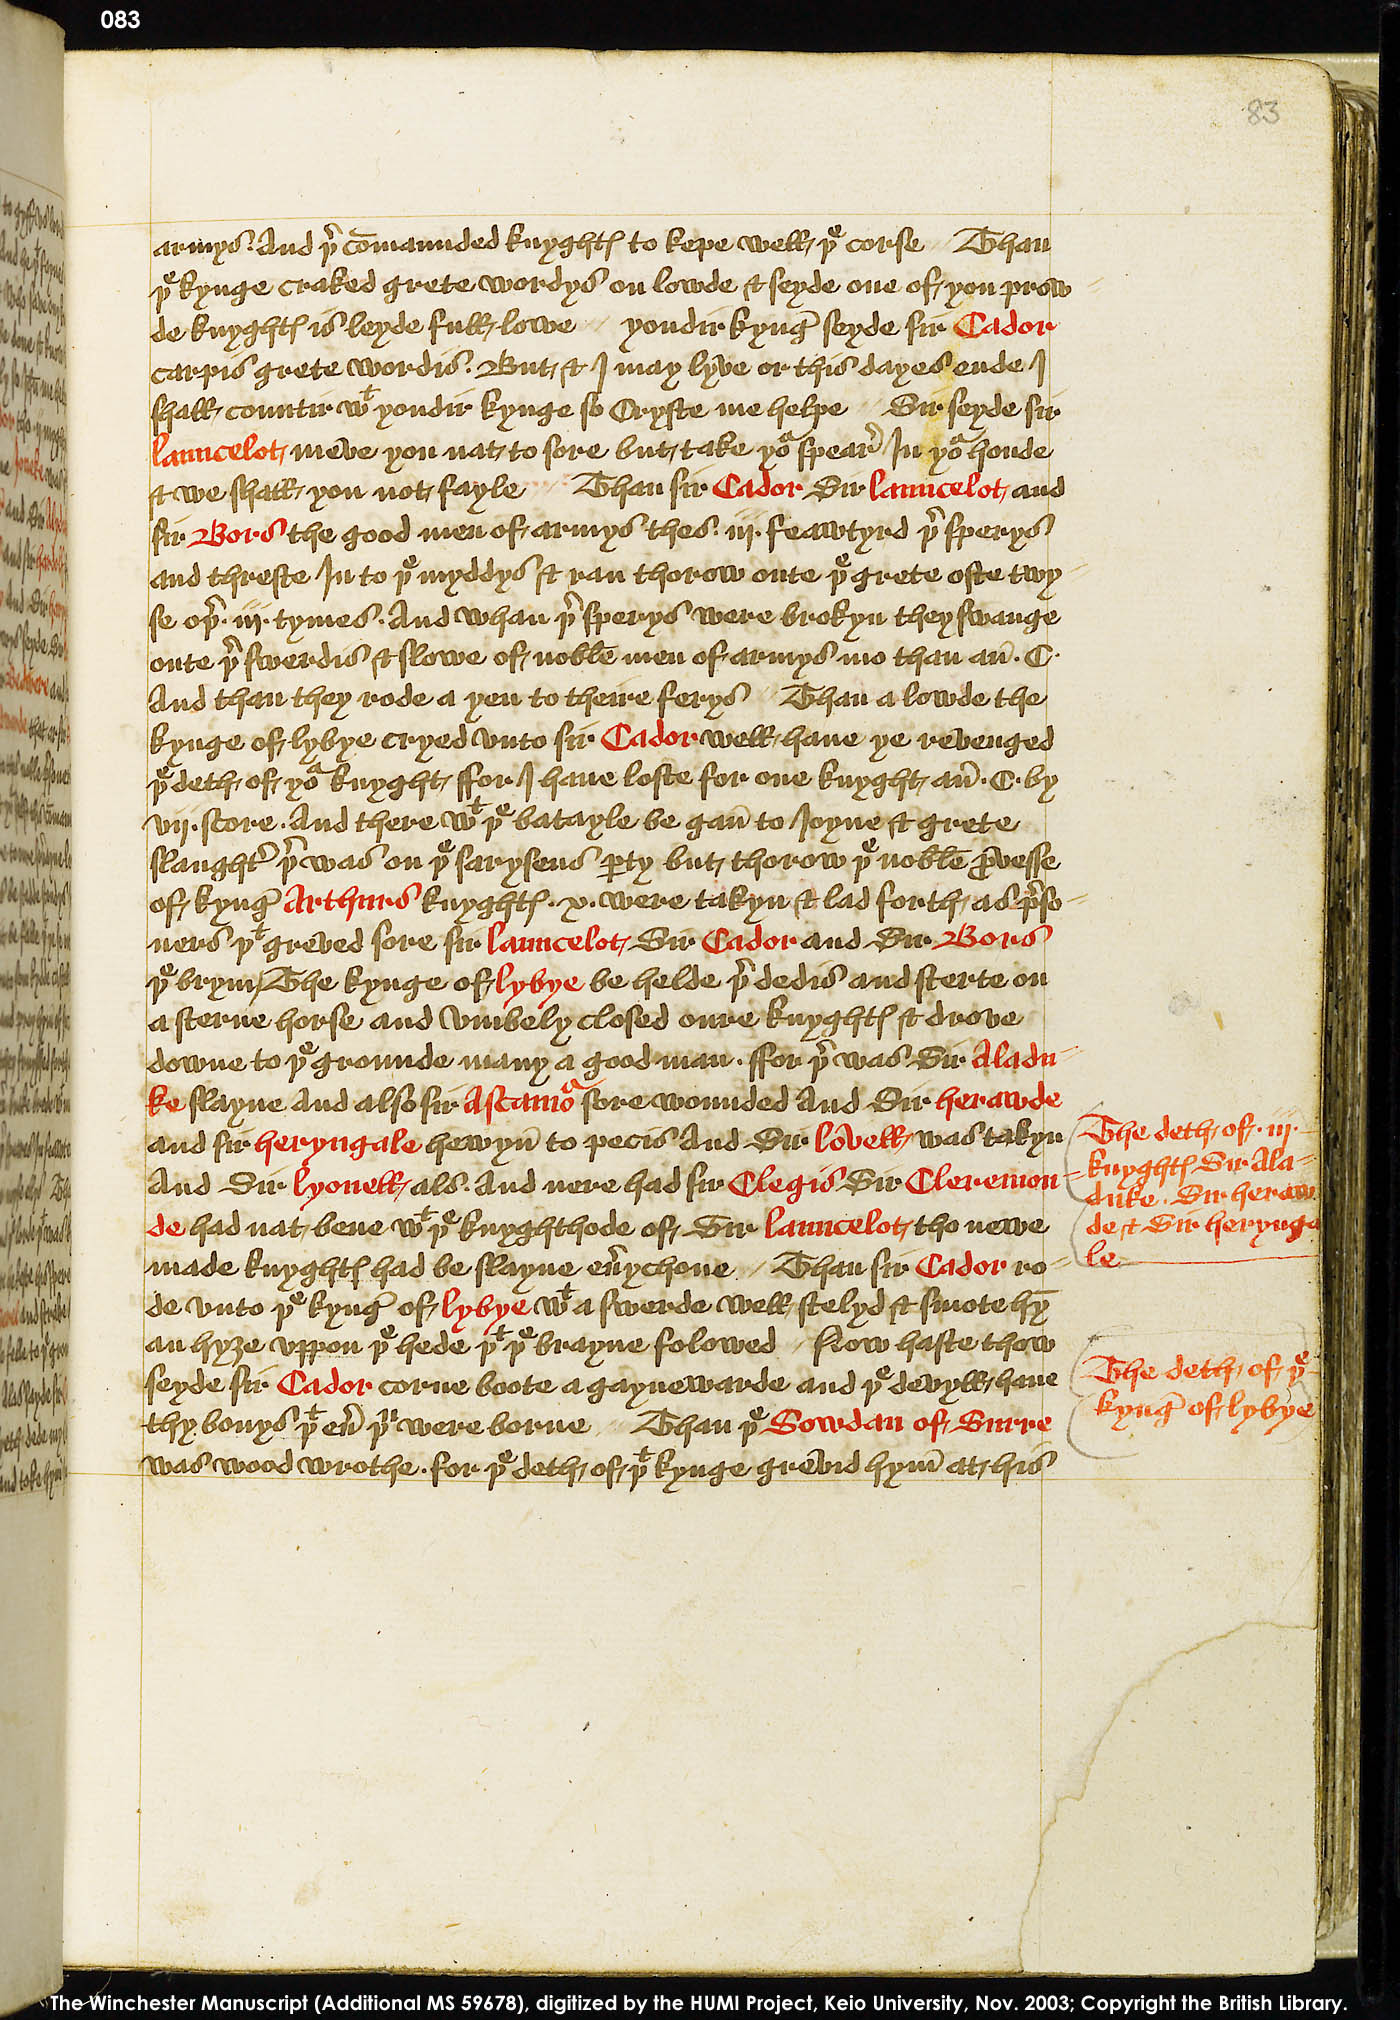 083
83
armys. And þr comaunded knyghtes to kepe well þe corse // Than
þe kynge craked grete wordys on lowde & seyde one of you prow
de knyghtes is leyde full lowe // yondir kynge seyde sir Cador
carpis grete wordis. But & I may lyve or this dayes ende I
shall countir wt yondir kynge so Cryste me helpe // Sir seyde sir
launcelot meve you nat to sore but take yor speare In yor honde
& we shall you not fayle // Than sir Cador Sir launcelot and
sir Bors the good men of armys thes .iij. feawtyrd þr sperys
and threste In to þe myddys & ran thorow oute þe grete oste twy
se oþr .iij. tymes. And whan þr sperys were brokyn they swange
oute þr swerdis & slowe of noble men of armys mo than an .C.
And than they rode a yen to theire ferys // Than a lowde the
kynge of lybye cryed vnto sir Cador well haue ye revenged
þe deth of yor knyght ffor I haue loste for one knyght an .C. by
vij. score. And there wt þe batayle be gan to Joyne & grete
slaughtr þr was on þe sarysens party but thorow þe noble prowesse
of kynge Arthurs knyghtes .x. were takyn & lad forth as priso
ners þt greved sore sir launcelot Sir Cador and Sir Bors
þe brym / The kynge of lybye be helde þr dedis and sterte on
a sterne horse and vmbely closed oure knyghtes & drove
downe to þe grounde many a good man. ffor þr was Sir Aladu
ke slayne And also sir Ascamor sore wounded And Sir herawde
and sir heryngale hewyn to pecis And Sir lovell was takyn
And Sir lyonell als. And nere had sir Clegis Sir Cleremon
de had nat bene wt þe knyghthode of Sir launcelot tho newe
made knyghtes had be slayne everychone // Than sir Cador ro
de vnto þe kynge of lybye wt a swerde well stelyd & smote hym
an hyze vppon þe hede þt þe brayne folowed // Now haste thow
seyde sir Cador corne boote a gaynewarde and þe devyll haue
thy bonys þt evr þu were borne // Than þe Sowdan of Surre
was wood wrothe. for þe deth of þt kynge grevid hym at his
The deth of .iij.
knyghtes Sir Ala
duke. Sir heraw
de & Sir herynga
le
The deth of þe
kynge of lybye
The Winchester Manuscript (Additional MS 59678), digitized by the HUMI Project, Keio University, Nov. 2003; Copyright the British Library.